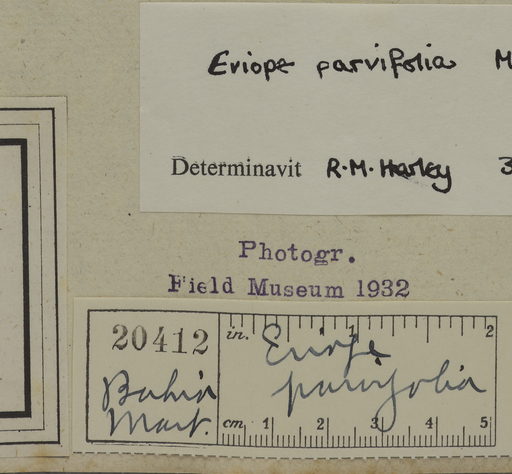 Eriope parvifolia M
Determinavit R.M. Harley 3
Photogr.
Field Museum 1932
20412
in. 1 2
Eriope
parvifolia
Bahia
Mart.
cm 1 2 3 4 5